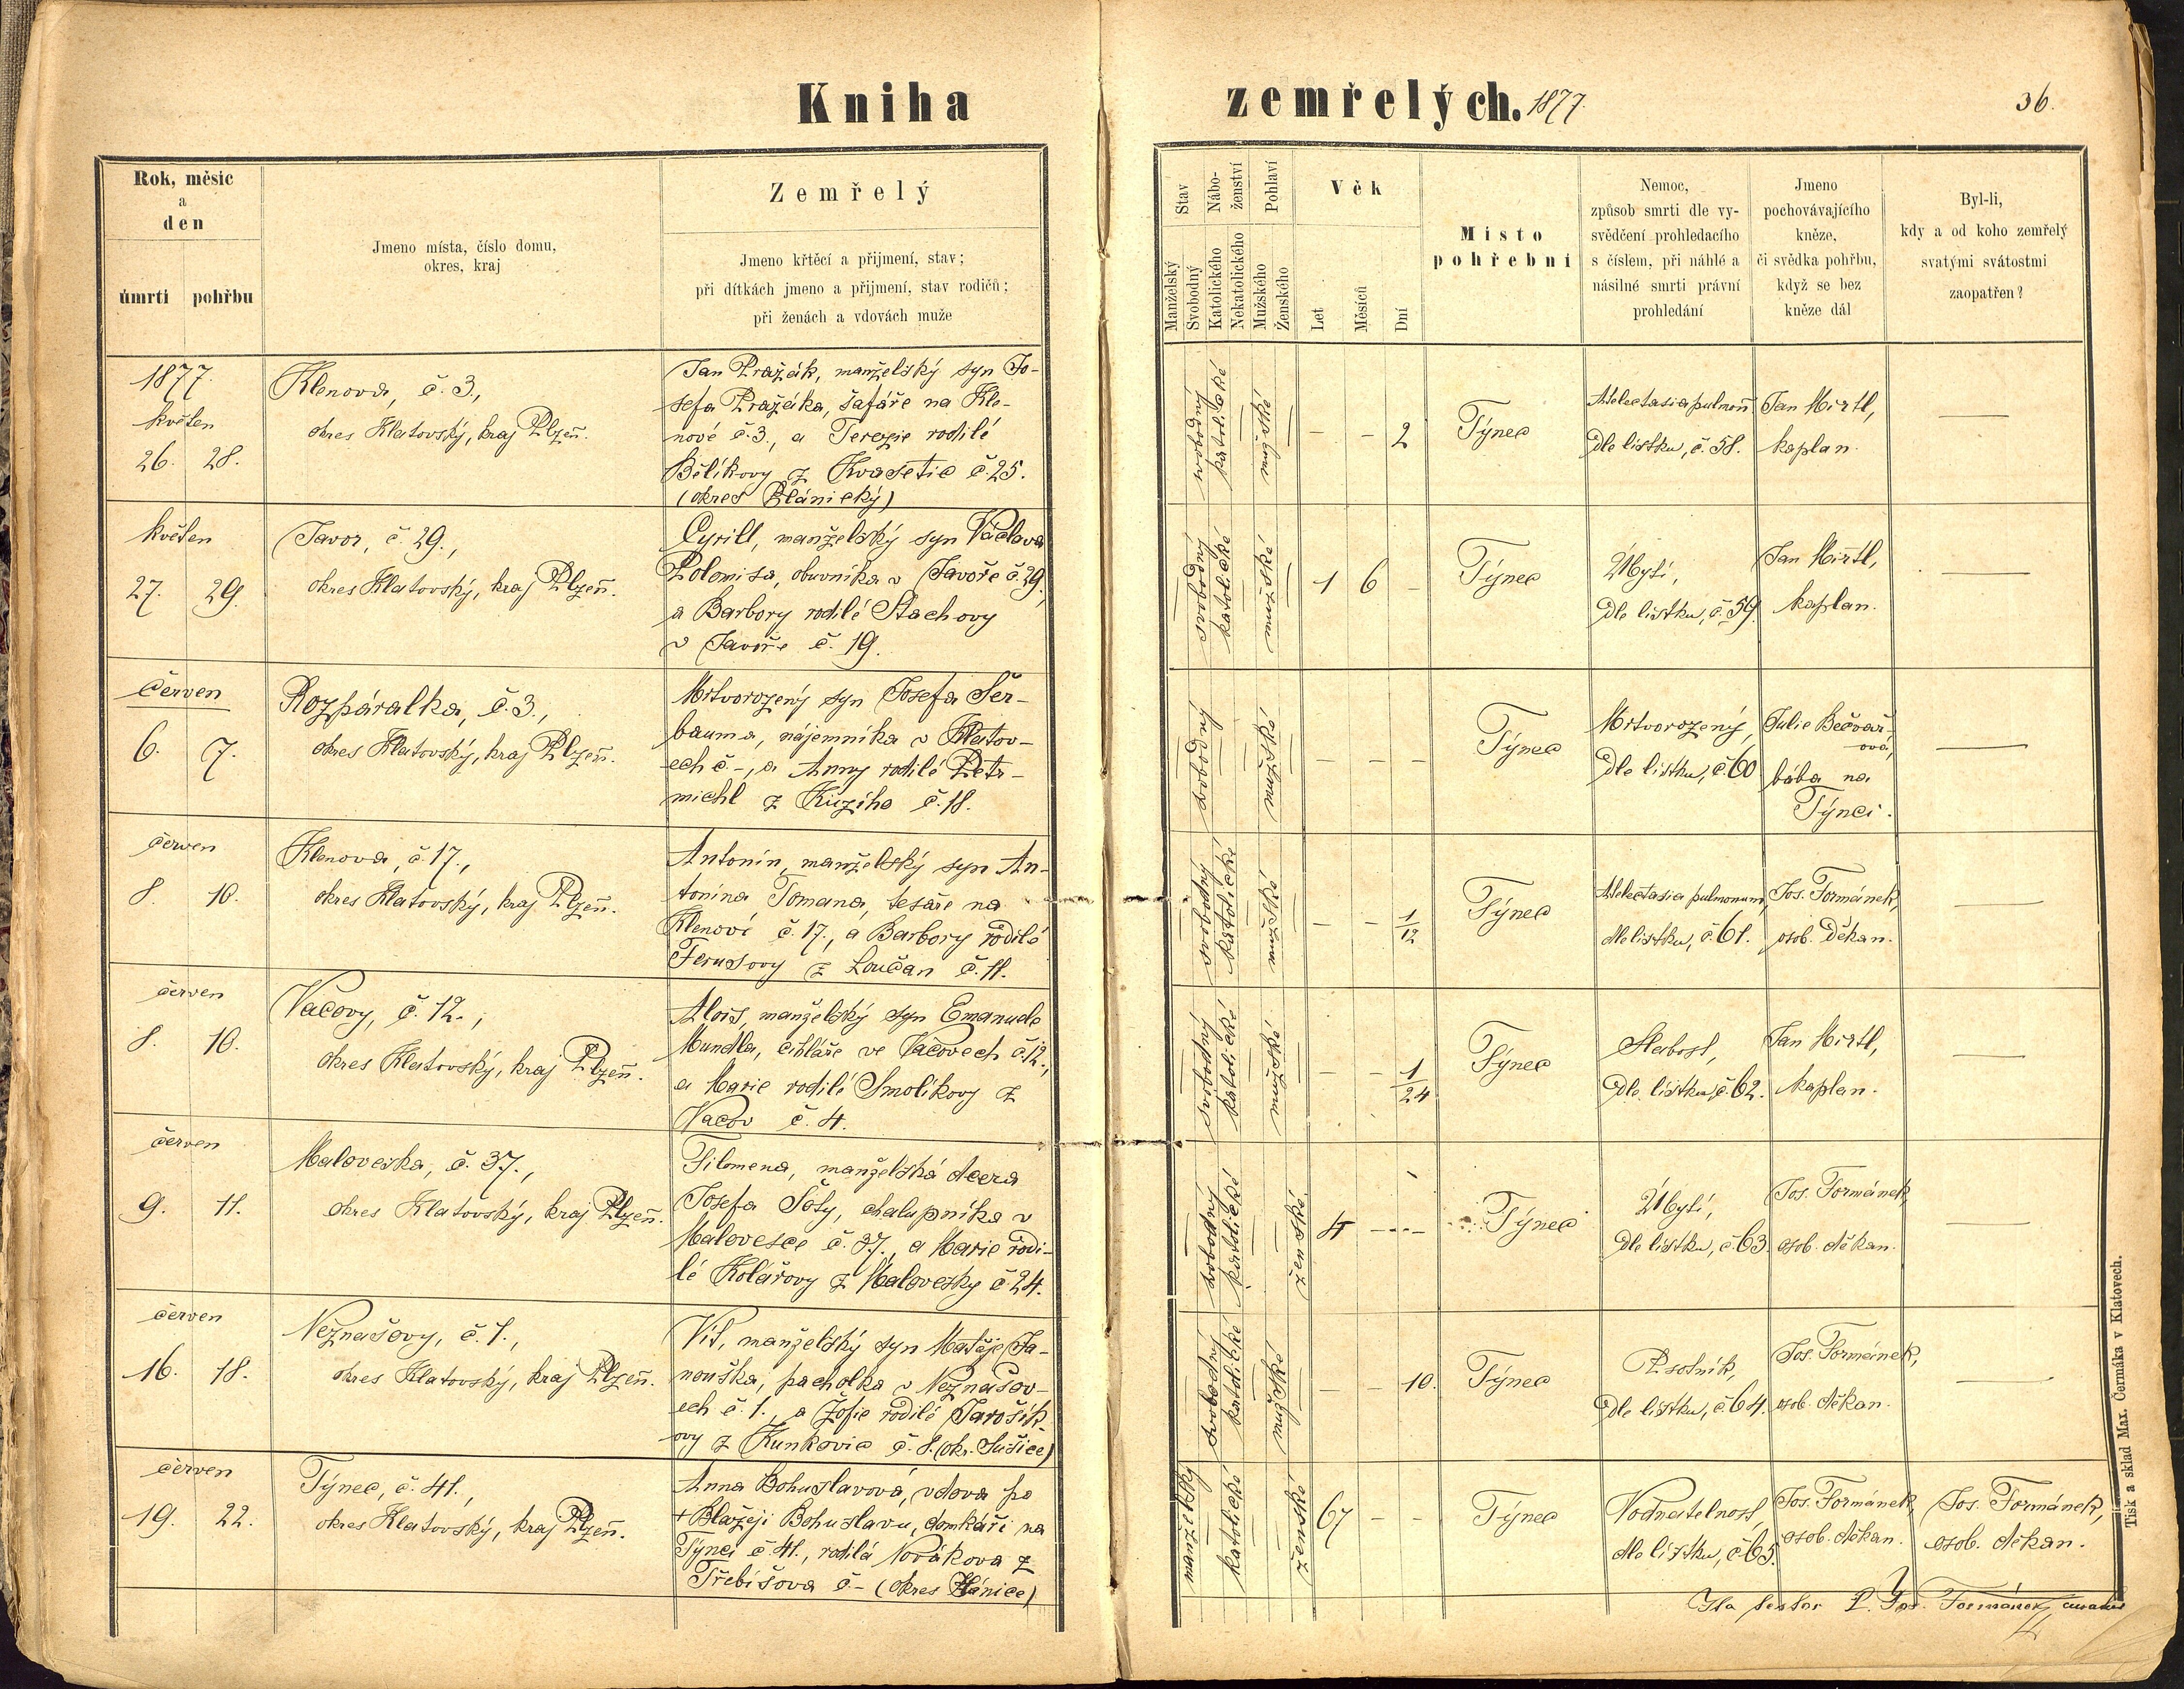 Kniha zemřelých. 1877.
36.
Rok, měsic
a
den
úmrti pohřbu
Jmeno místa, číslo domu,
okres, kraj
Zemřelý
Jmeno křtěcí a přijmení, stav;
při dítkách jmeno a přijmení, stav rodičů;
při ženách a vdovách muže
Stav
Manželský
Svobodný
Nábo-
ženství
Katolického
Nekatolického
Pohlaví
Mužského
Ženského
Věk
Let
Měsíců
Dní
Místo
pohřební
Nemoc,
způsob smrti dle vy-
svědčení prohledacího
s číslem, při náhlé a
násilné smrti právní
prohledání
Jmeno
pochovávajícího
kněze,
či svědka pohřbu,
když se bez
kněze dál
Byl-li,
kdy a od koho zemřelý
svatými svátostmi
zaopatřen?
1877.
květen
26. 28.
Klenova, č. 3.,
okres Klatovský, kraj Plzeň.
Jan Pražák, manželský syn Jo-
sefa Pražáka, šafáře na Kle-
nové č. 3., a Terezie rodilé
Bělíkovy z Kvasetic č 25.
(okres Plánický)
svobodný
katolické
mužské
– – 2
Týnec
Atelectasia pulmon̄
Dle lístku, č. 58.
Jan Hirtl,
kaplan.
—
květen
27. 29.
Javor, č. 29.,
okres Klatovský, kraj Plzeň.
Cyrill, manželský syn Václava
Polomisa, obuvníka v Javoře č. 29.,
a Barbory rodilé Stachovy
v Javoře č. 19.
svobodný
katolické
mužské
1 6 –
Týnec
Úbytí,
Dle lístku, č. 59.
Jan Hirtl,
kaplan.
—
Červen
6. 7.
Rozpáralka, č. 3.,
okres Klatovský, kraj Plzeň.
Mrtvorozený syn Josefa Fer-
bauma, nájemníka v Klatov-
ech č –, a Anny rodilé Petr-
michl z č. 18.
svobodný
mužské
– – –
Týnec
Mrtvorozený,
Dle lístku, č. 60
Julie Bečvář-
ová,
bába na
Týnci.
—
červen
8. 10.
Klenova, č. 17.,
okres Klatovský, kraj Plzeň.
Antonín, manželský syn An-
tonína Tomana, tesaře na
Klenové č. 17., a Barbory rodilé
Ferusovy z Loučan č. 11.
svobodný
katolické
mužské
– – 1/12
Týnec
Atelectasia pulmonum,
dle lístku, č. 61.
Jos. Formánek,
osob. Děkan.
—
červen
8. 10.
Vačovy, č. 12.,
okres Klatovský, kraj Plzeň.
Alois, manželský syn Emanuele
Mundla, cihláře ve Vačovech č. 12.,
a Marie rodilé Smolíkovy z
Vačov č. 4.
svobodný
katolické
mužské
– – 1/24
Týnec
Slabost,
Dle lístku, č. 62.
Jan Hirtl,
kaplan.
—
červen
9. 11.
Maloveska, č. 37.,
okres Klatovský, kraj Plzeň.
Filomena, manželská dcera
Josefa Šoty, chalupníka v
Malovesce č. 37., a Marie rodi-
lé Kolářovy z Malovesky č. 24.
svobodný
katolické
ženské
4 – – –
Týnec
Úbytí,
Dle lístku, č. 63.
Jos. Formánek,
osob. děkan.
—
červen
16. 18.
Neznašovy, č. 1.,
okres Klatovský, kraj Plzeň.
Vít, manželský syn Matěje Ja-
nouška, pacholka v Neznašov-
ech č. 1., a Žofie rodilé Jarošík
ovy z Kunkovic č. 8. (okr. Sušice)
svobodný
katolické
mužské
– – 10.
Týnec
Psotník,
Dle lístku, č 64.
Jos. Formánek,
osob. děkan.
—
červen
19. 22.
Týnec, č. 41.,
okres Klatovský, kraj Plzeň.
Anna Bohuslavová, vdova po
+ Blažeji Bohuslavu, domkáři na
Týnci č. 41., rodilá Novákova z
Třebišova č – (okres Plánice)
manželský
katolické
ženské
67 – –
Týnec
Vodnatelnost,
dle lístku, č 65.
Jos. Formánek,
osob. děkan.
Jos. Formánek,
osob. děkan.
Ita testor P. Jos. Formánek, curatus
Tisk a sklad Max. Čermáka v Klatovech.